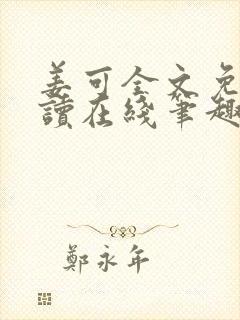 姜可全文免
讀在綫筆趣
鄭永年